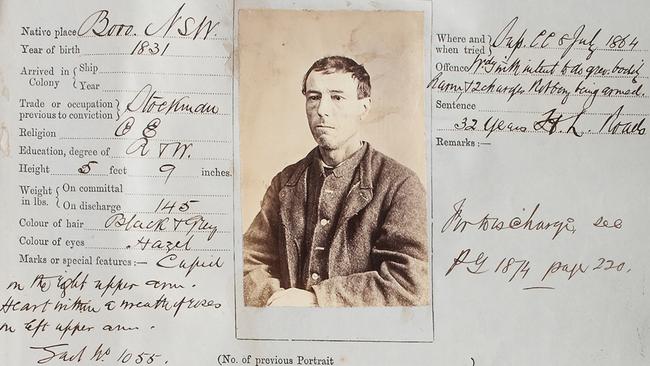 Native place Boro. N S W.
Year of birth 1831
Arrived in Colony { Ship
Year
Trade or occupation previous to conviction } Stockman
Religion C E
Education, degree of R & W.
Height 5 feet 9 inches.
Weight in lbs. { On committal
On discharge 145
Colour of hair Black & Grey
Colour of eyes Hazel
Marks or special features:— Cupid
on the right upper arm.
Heart within a wreath of roses
on left upper arm.
Gaol No 1055.
(No. of previous Portrait )
Where and when tried } Sup. CC 8 July 1864
Offence Wdg with intent to do grev. bodily
Harm & 2 charges Robbery being armed.
Sentence
32 Years H. L. Roads
Remarks:—
For discharge, see
PG 1874 page 220.